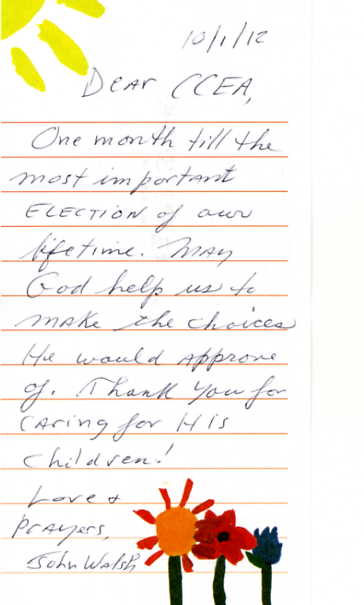 10/1/12
Dear CCEA,
One month till the
most important
ELECTION of our
lifetime. May
God help us to
make the choices
He would approve
of. Thank you for
caring for His
children!
Love &
Prayers,
John Walsh